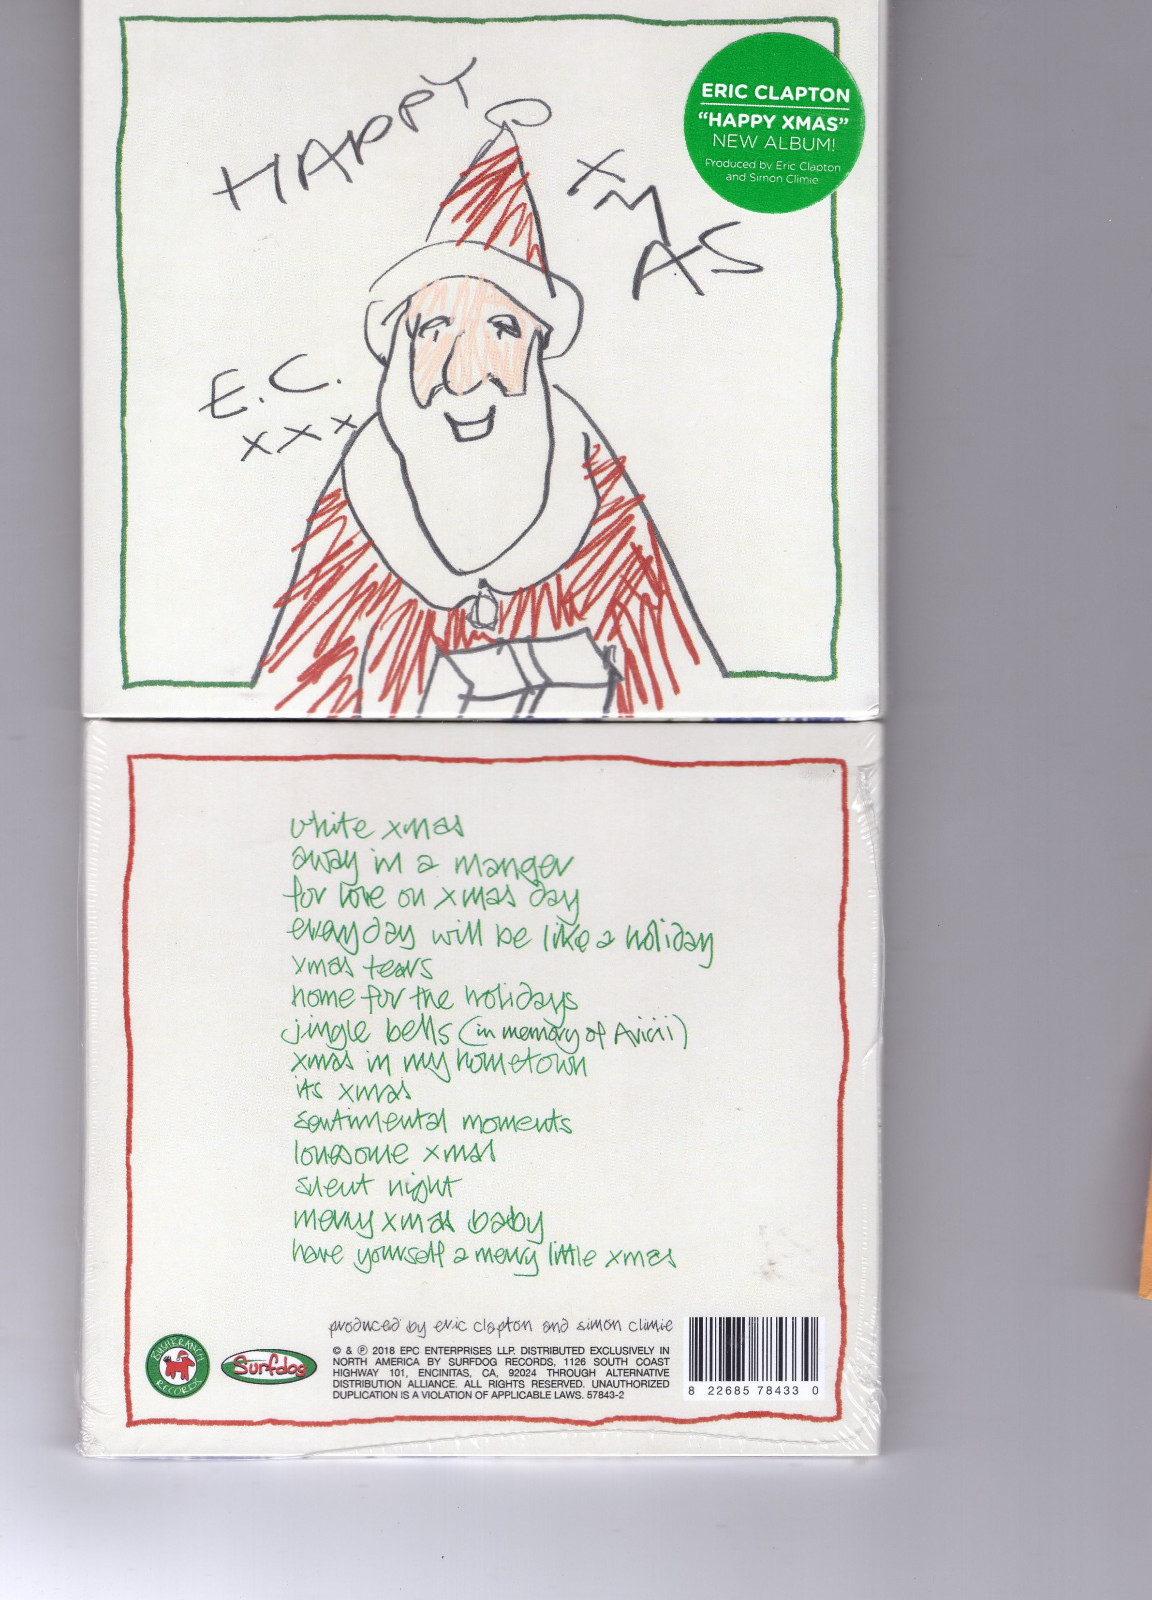 HAPPY
XMAS
E.C.
xxx
ERIC CLAPTON
"HAPPY XMAS"
NEW ALBUM!
Produced by Eric Clapton
and Simon Climie
white xmas
away in a manger
for love on xmas day
everyday will be like a holiday
xmas tears
home for the holidays
jingle bells (in memory of Avicii)
xmas in my hometown
its xmas
sentimental moments
lonesome xmas
silent night
merry xmas baby
have yourself a merry little xmas
produced by eric clapton and simon climie
© & ℗ 2018 EPC ENTERPRISES LLP. DISTRIBUTED EXCLUSIVELY IN
NORTH AMERICA BY SURFDOG RECORDS, 1126 SOUTH COAST
HIGHWAY 101, ENCINITAS, CA, 92024 THROUGH ALTERNATIVE
DISTRIBUTION ALLIANCE. ALL RIGHTS RESERVED. UNAUTHORIZED
DUPLICATION IS A VIOLATION OF APPLICABLE LAWS. 57843-2
BUSHBRANCH
RECORDS
Surfdog
8 22685 78433 0